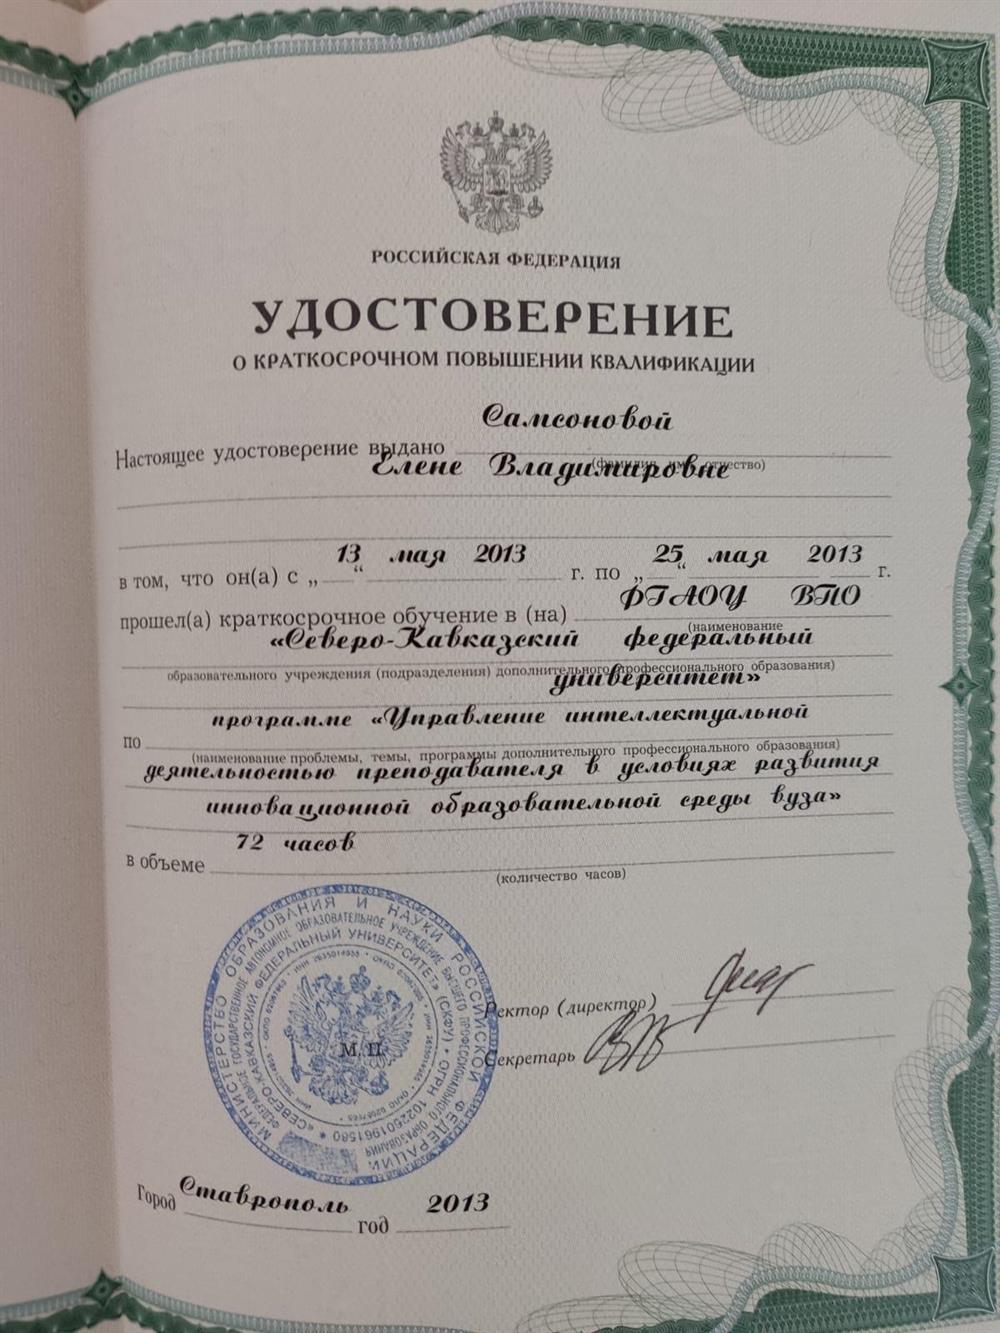 РОССИЙСКАЯ ФЕДЕРАЦИЯ
УДОСТОВЕРЕНИЕ
О КРАТКОСРОЧНОМ ПОВЫШЕНИИ КВАЛИФИКАЦИИ
Самсоновой
Настоящее удостоверение выдано
(фамилия, имя, отчество)
Елене Владимировне
13 мая 2013 25 мая 2013
в том, что он(а) с „ “ г. по „ “ г.
ФГАОУ ВПО
прошел(а) краткосрочное обучение в (на)
(наименование
«Северо-Кавказский федеральный
образовательного учреждения (подразделения) дополнительного профессионального образования)
университет»
программе «Управление интеллектуальной
по
(наименование проблемы, темы, программы дополнительного профессионального образования)
деятельностью преподавателя в условиях развития
инновационной образовательной среды вуза»
72 часов
в объеме
(количество часов)
МИНИСТЕРСТВО ОБРАЗОВАНИЯ И НАУКИ РОССИЙСКОЙ ФЕДЕРАЦИИ
ФЕДЕРАЛЬНОЕ ГОСУДАРСТВЕННОЕ АВТОНОМНОЕ ОБРАЗОВАТЕЛЬНОЕ УЧРЕЖДЕНИЕ ВЫСШЕГО ПРОФЕССИОНАЛЬНОГО ОБРАЗОВАНИЯ
«СЕВЕРО-КАВКАЗСКИЙ ФЕДЕРАЛЬНЫЙ УНИВЕРСИТЕТ» (СКФУ) * ОГРН 1022501961580 *
М.П.
Ректор (директор)
Секретарь
Город Ставрополь год 2013